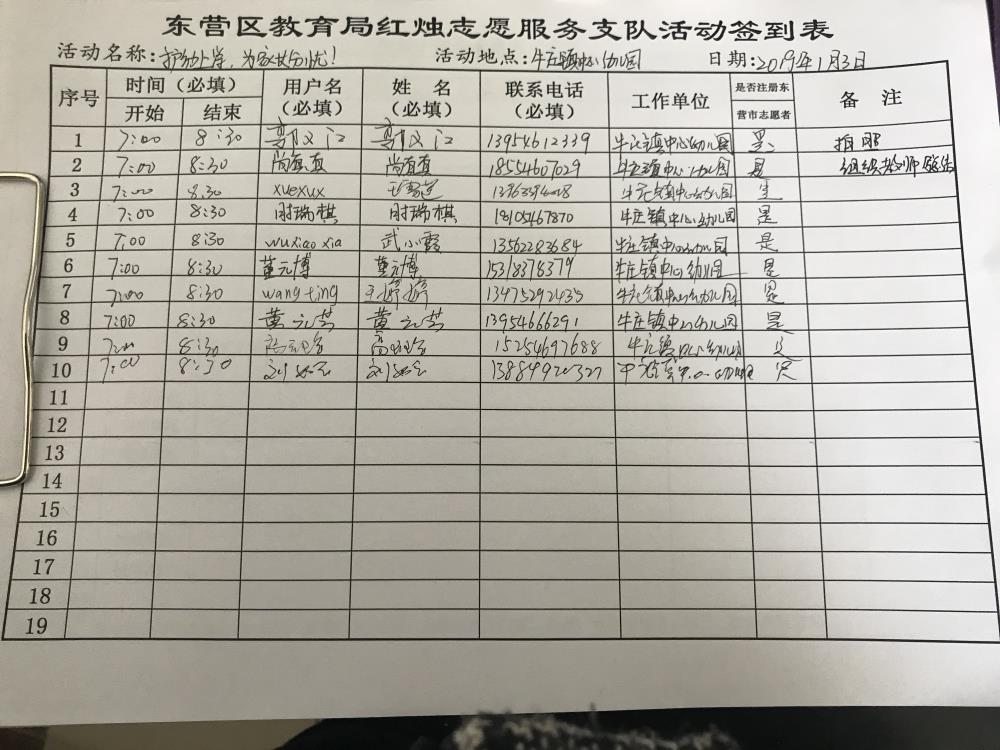 东营区教育局红烛志愿服务支队活动签到表
活动名称: 护幼上岸, 为家长分忧! 活动地点: 牛庄镇中心幼儿园 日期: 2019年1月3日
序号 时间（必填） 开始 结束 用户名（必填） 姓 名（必填） 联系电话（必填） 工作单位 是否注册东营市志愿者 备 注
1 7:00 8:30 13954612339 牛庄镇中心幼儿园 是
2 7:00 8:30 尚真真 尚真真 18554607029 牛庄镇中心幼儿园 是
3 7:00 8:30 xuexux 牛庄镇中心幼儿园 是
4 7:00 8:30 时瑞棋 时瑞棋 18105467870 牛庄镇中心幼儿园 是
5 7:00 8:30 wuxiaoxia 武小霞 13562283684 牛庄镇中心幼儿园 是
6 7:00 8:30 董元博 董元博 15318378379 牛庄镇中心幼儿园 是
7 7:00 8:30 wangting 王婷婷 13475292435 牛庄镇中心幼儿园 是
8 7:00 8:30 13954666291 牛庄镇中心幼儿园 是
9 7:00 8:30 15254697688 牛庄镇中心幼儿园 是
10 7:00 8:30
11
12
13
14
15
16
17
18
19